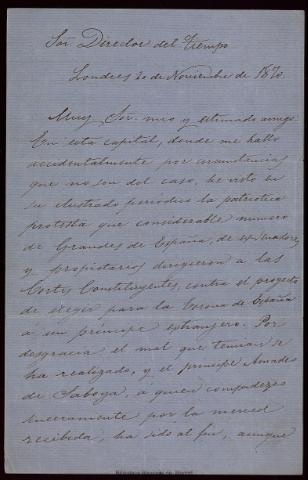 Sor Director del Tiempo
Londres 20 de Noviembre de 1870.
Muy Sor. mio y estimado amigo:
En esta capital, donde me hallo
accidentalmente por circunstancias
que no son del caso, he visto en
su ilustrado periódico la patriotica
protesta que considerable numero
de Grandes de España, de exsenadores
y propietarios dirigieron a las
Cortes Constituyentes, contra el proyecto
de elegir para la Corona de España
a un principe extrangero. Por
desgracia el mal que temian se
ha realizado, y el principe Amadeo
de Saboya, a quien compadezco
sinceramente por la merced
recibida, ha sido al fin, aunque
Biblioteca Nacional de España